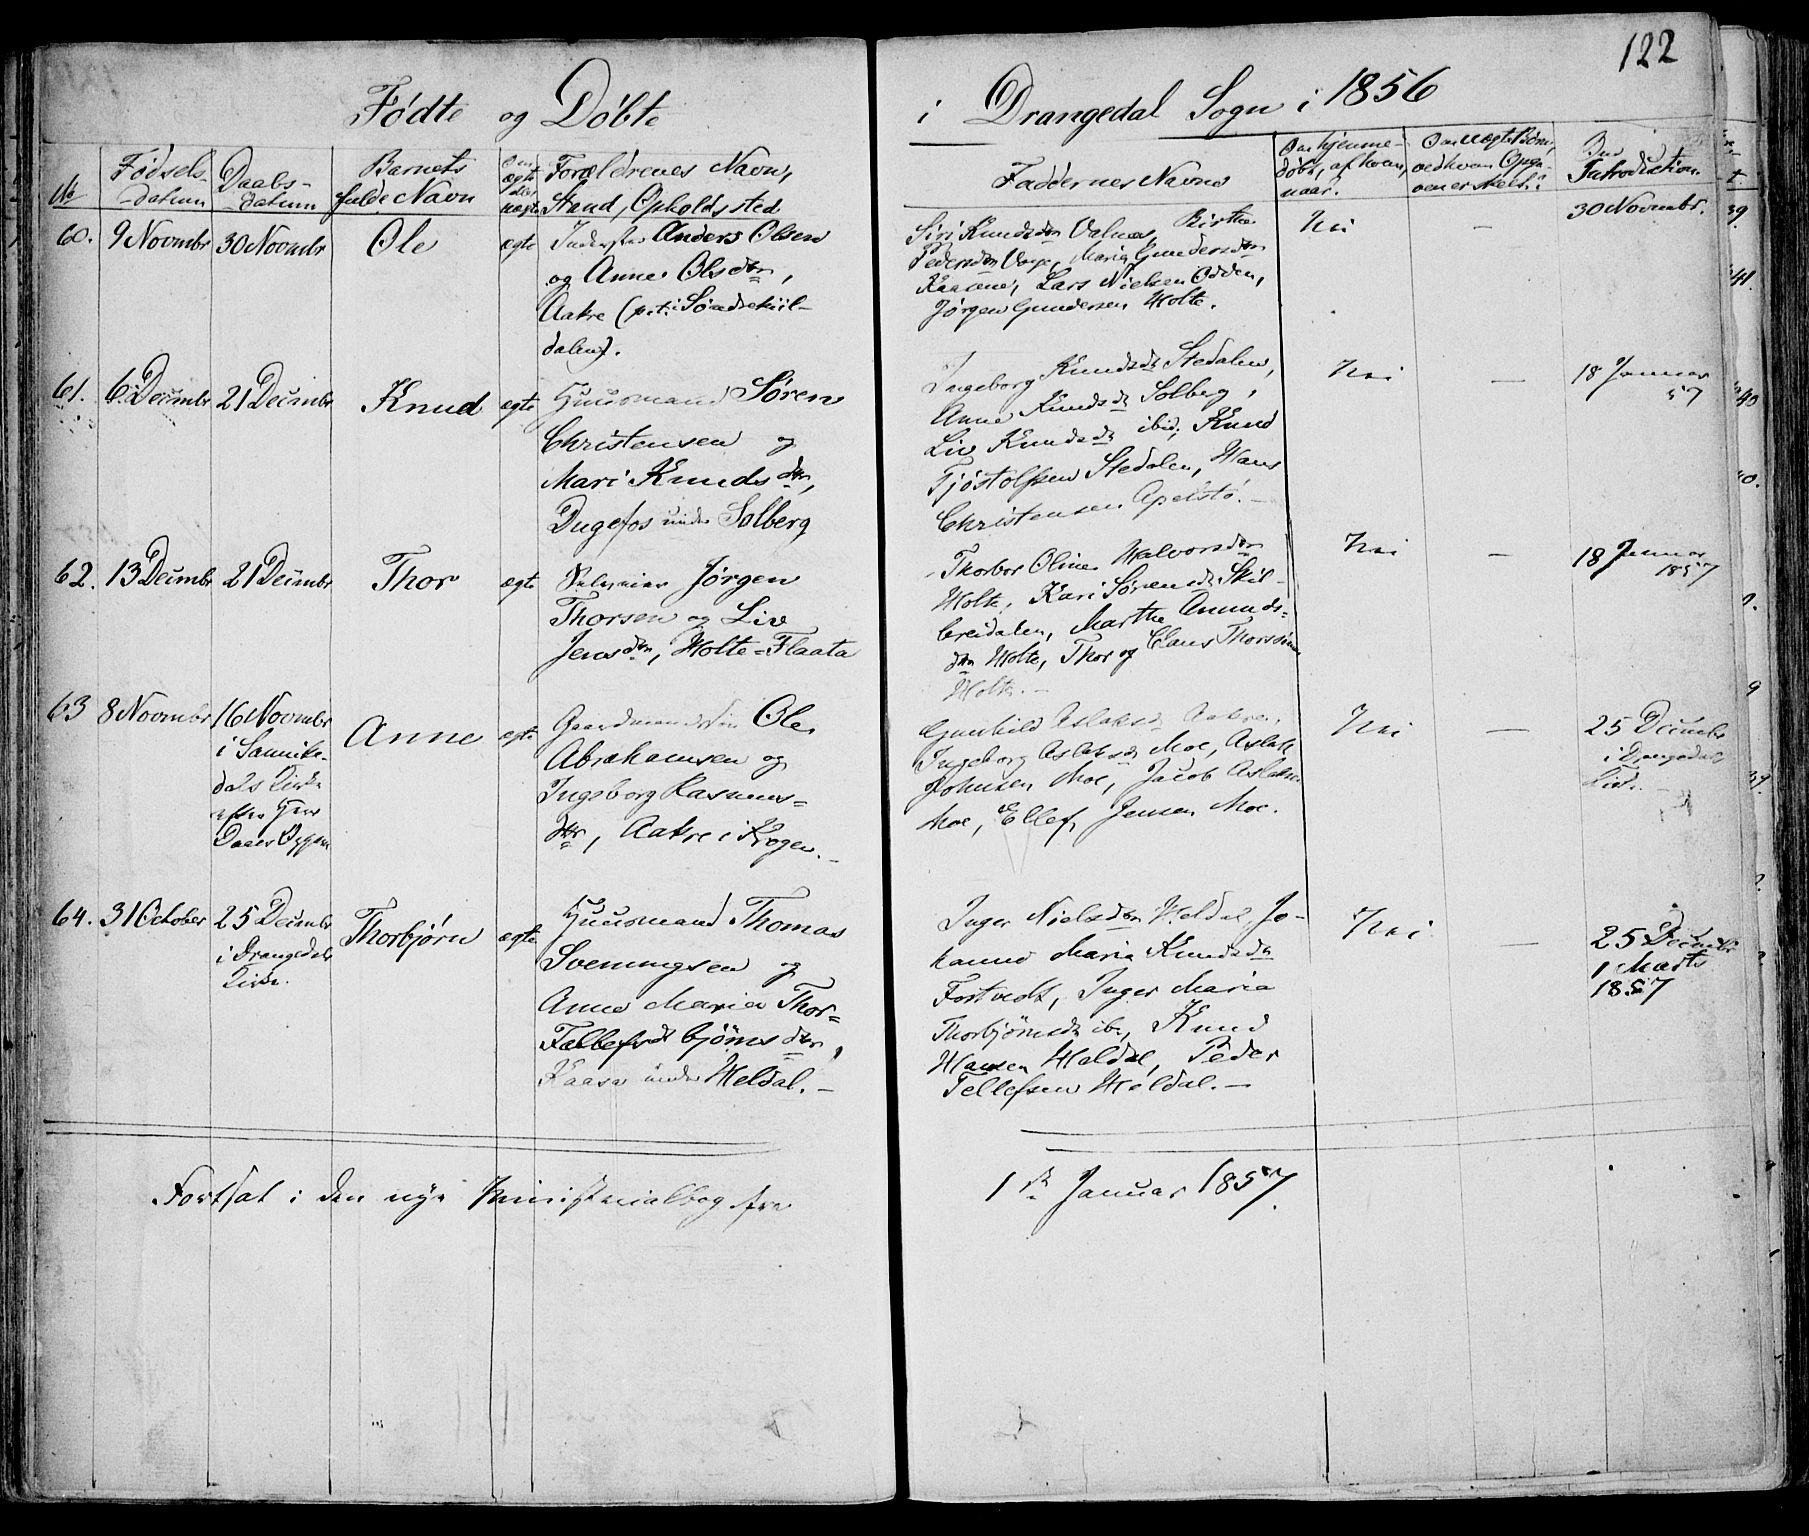 122
Fødte og Døbte i Drangedal Sogn i 1856
№
Fødsels-
datum
Daabs-
datum
Barnets
fulde Navn
Om
ægte
eller
uægte
Forældrenes Navn,
Stand, Opholdssted
Faddernes Navne
Om hjemme-
døbt, af hvem,
naar.
Om uægte Børn,
ved hvem
Introduction
60.
9 Novembr
30 Novembr
Ole
ægte
Inderster Anders Olsen
og Anne Olsdtr,
Aakre (p.t. i Søndsekiil-
dalen).
Siri Knudsdtr Valnæs, Birthe
Pedersdtr Vaje, Maria Gundersdtr
Lars Nielsen Odden,
Jørgen Gundersen Holte.
Nei
—
30 Novembr.
61.
6 Decembr
21 Decembr
Knud
ægte
Huusmand Søren
Christensen og
Mari Knudsdtr,
Dugefos under Solberg
Ingeborg Knudsdt Stedalen,
Anne Knudsdt Solberg,
Liv Knudsdt ibid, Knud
Tjøstolfsen Stedalen, Hans
Christensen Apelstø. —
Nei
—
18 Januar
57
62.
13 Decembr
21 Decembr
Thor
ægte
Selveier Jørgen
Thorsen og Liv
Jensdtr, Holte-Flaata
Thorbor Oline Halvorsdtr
Holte, Kari Sørensdt Skil-
breidalen, Marthe Amunds-
dtr Holte, Thor og Claus Thorssønner
Holte. —
Nei
—
18 Januar
1857
63
8 Novembr
16 Novembr
i Sannike-
dals Kirke
efter
Anne
ægte
Gaardmand Ole
Abrahamsen og
Ingeborg Rasmus-
dtr, Aakre i Krogen. —
Gunhild Aslaksdt Aakre,
Ingeborg Aslaksdt Moe, Aslak
Johnsen Moe, Jacob Aslaksen
Moe, Ellef Jensen Moe.
Nei
—
25 Decembr
i Drangedals
Kirke.
64.
31 October
25 Decembr
i Drangedals
Kirke.
Thorbjørn
ægte
Huusmand Thomas
Sveningsen og
Anne Maria Thor-
Tellefsdt bjørnsdtr,
Kaasa under Heldal. —
Inger Nielsdtr Heldal, Jo-
hanne Maria Knudsdtr
Fostvedt, Inger Maria
Thorbjørnsdt ib., Knud
Hansen Heldal, Peder
Tellefsen Heldal. —
Nei
—
25 Decembr
1 Marts
1857
Fortsat i den nye Ministerialbog fra 1ste Januar 1857.